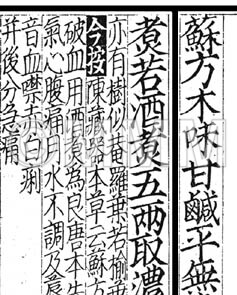 蘇方木味甘鹹平無
煮若酒煮五兩取濃
亦有樹似菴羅葉若榆葉
今按陳藏器本草云蘇方
破血用酒煮為良唐本先
氣心腹痛月水不調及窘
音血噤赤白痢
并後分急痛